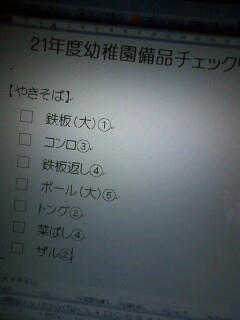 21年度幼稚園備品チェック
【やきそば】
□ 鉄板(大)①
□ コンロ③
□ 鉄板返し④
□ ボール(大)⑤
□ トング②
□ 菜ばし④
□ ザル②